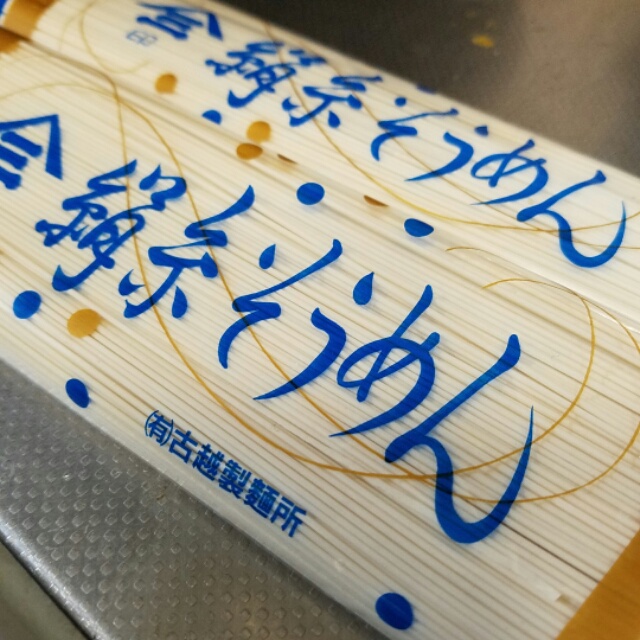 絹糸そうめん
㈲古越製麺所
絹糸そうめん